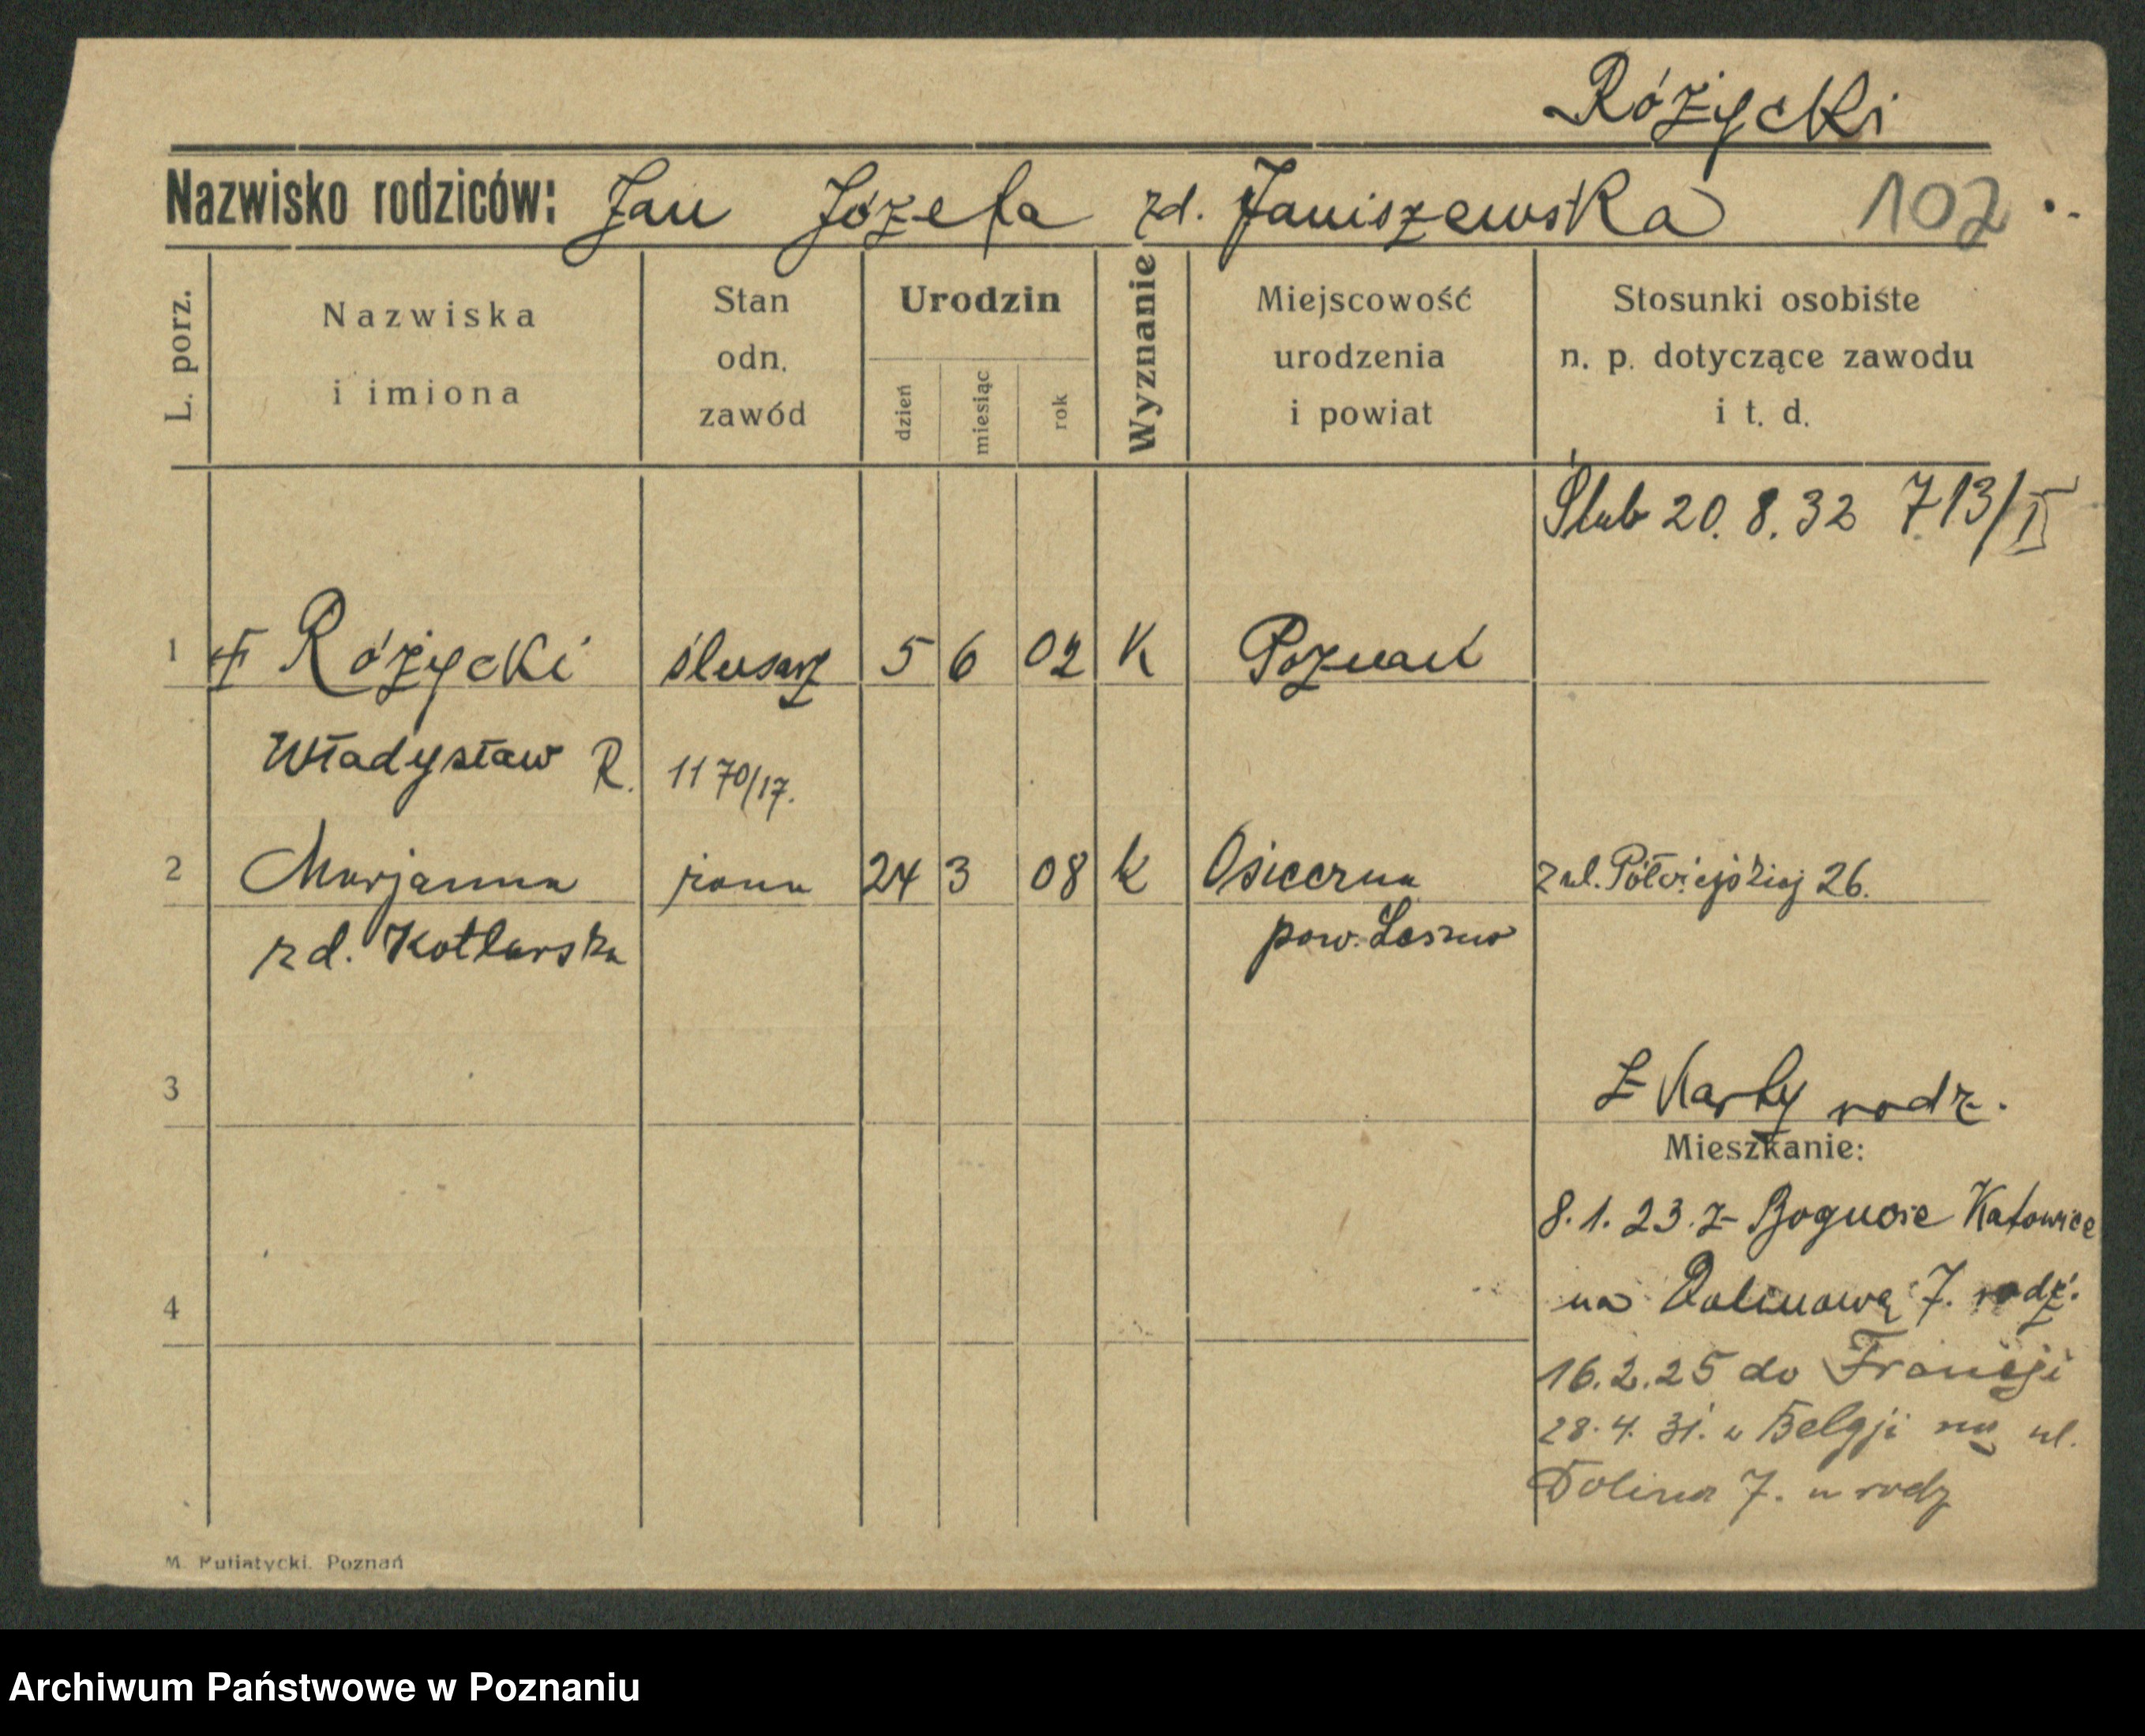 Różycki
Nazwisko rodziców: Jan Józefa zd. Janiszewska 102
L. porz.
Nazwiska
i imiona
Stan
odn.
zawód
Urodzin
dzień
miesiąc
rok
Wyznanie
Miejscowość
urodzenia
i powiat
Stosunki osobiste
n. p. dotyczące zawodu
i t. d.
Ślub 20. 8. 32 713/II
1 Różycki ślusarz 5 6 02 K Poznań
Władysław R. 1170/17.
2 Marjanna żona 24 3 08 k Osieczna z ul. Półwiejskiej 26.
zd. Kotlarska pow. Leszno
3 Z Karty rodz.
Mieszkanie:
8. 1. 23. z Katowice
4 na Dolinową 7. rodz.
16. 2. 25 do Francji
28. 4. 31. w Belgji na ul.
Dolina 7. u rodz
M. Putiatycki. Poznań
Archiwum Państwowe w Poznaniu